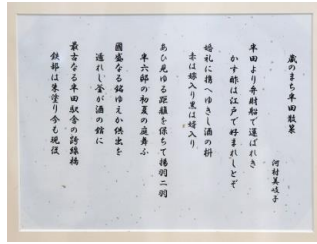 蔵のまち半田散策
河村美岐子
半田より弁財船で運ばれき
かす酢は江戸で好まれしとぞ
婚礼に携へゆきし酒の樽
赤は嫁入り黒は婿入り
あひ見ゆる距離を保ちて揚羽二羽
半六邸の初夏の庭舞ふ
國盛なる銘ゆえか供出を
逃れし釜が酒の館に
最古なる半田駅舎の跨線橋
鉄部は朱塗り今も現役